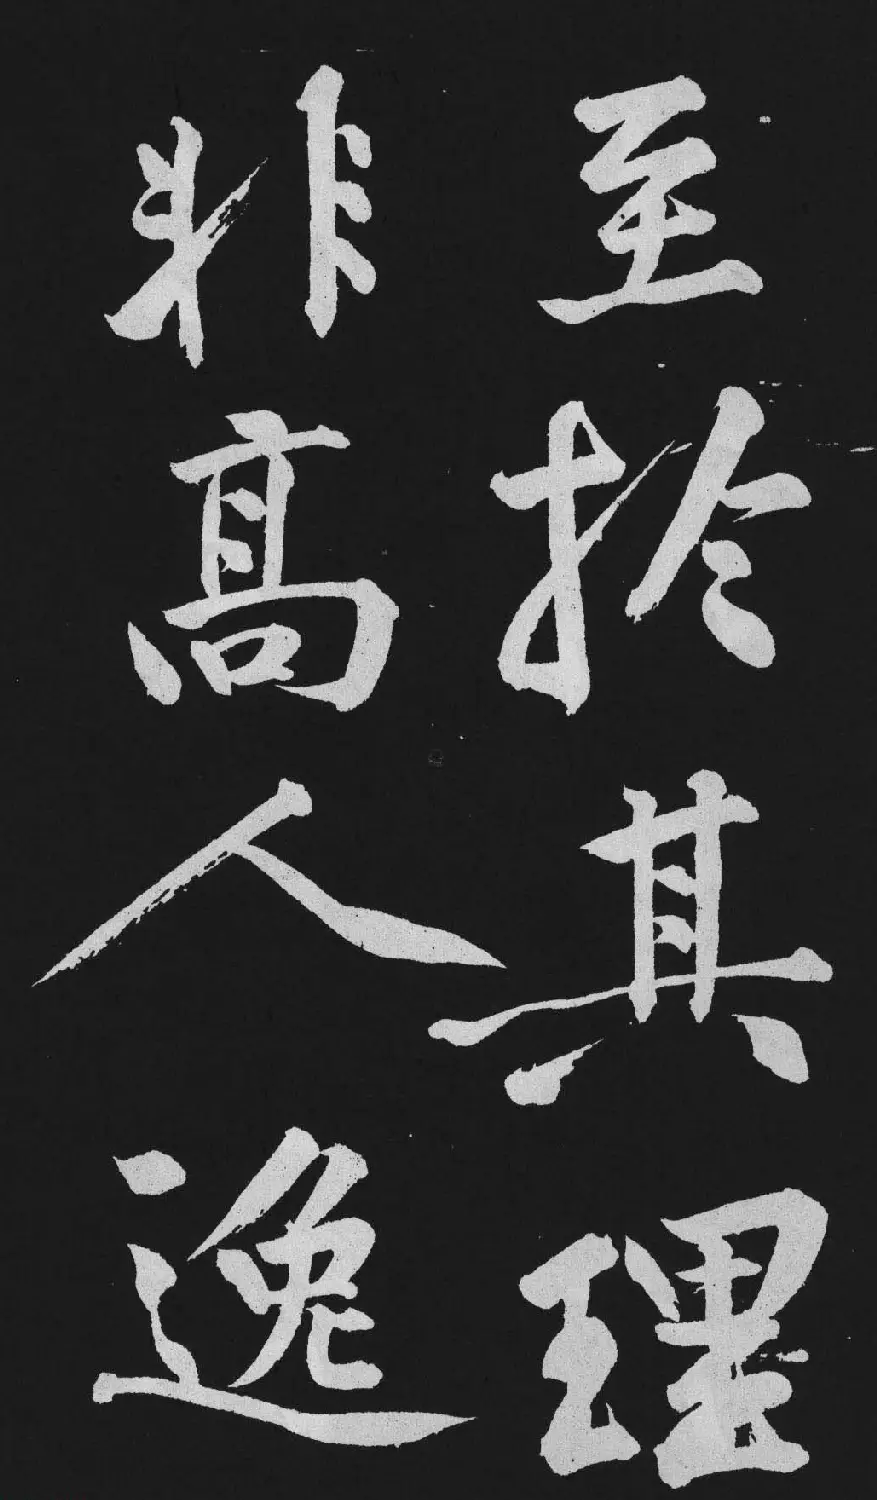 至於其理
非高人逸